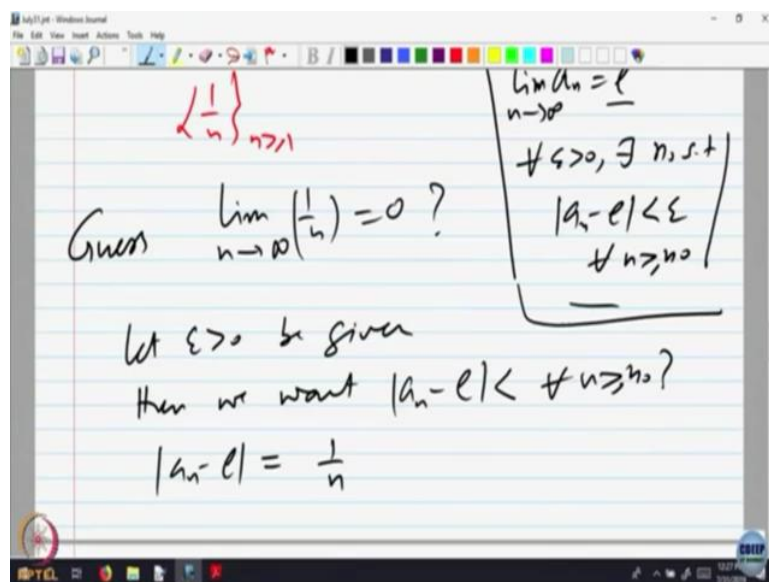 July31.jnt - Windows Journal
File Edit View Insert Actions Tools Help
B I
{1/n}n≥1
lim an = l
n→∞
∀ ε>0, ∃ n₀ s.t
|an - l| < ε
∀ n≥n₀
Guess lim n→∞ (1/n) = 0 ?
let ε>0 be given
then we want |an - l| < ∀ n≥n₀?
|an - l| = 1/n
NPTEL
CDEEP